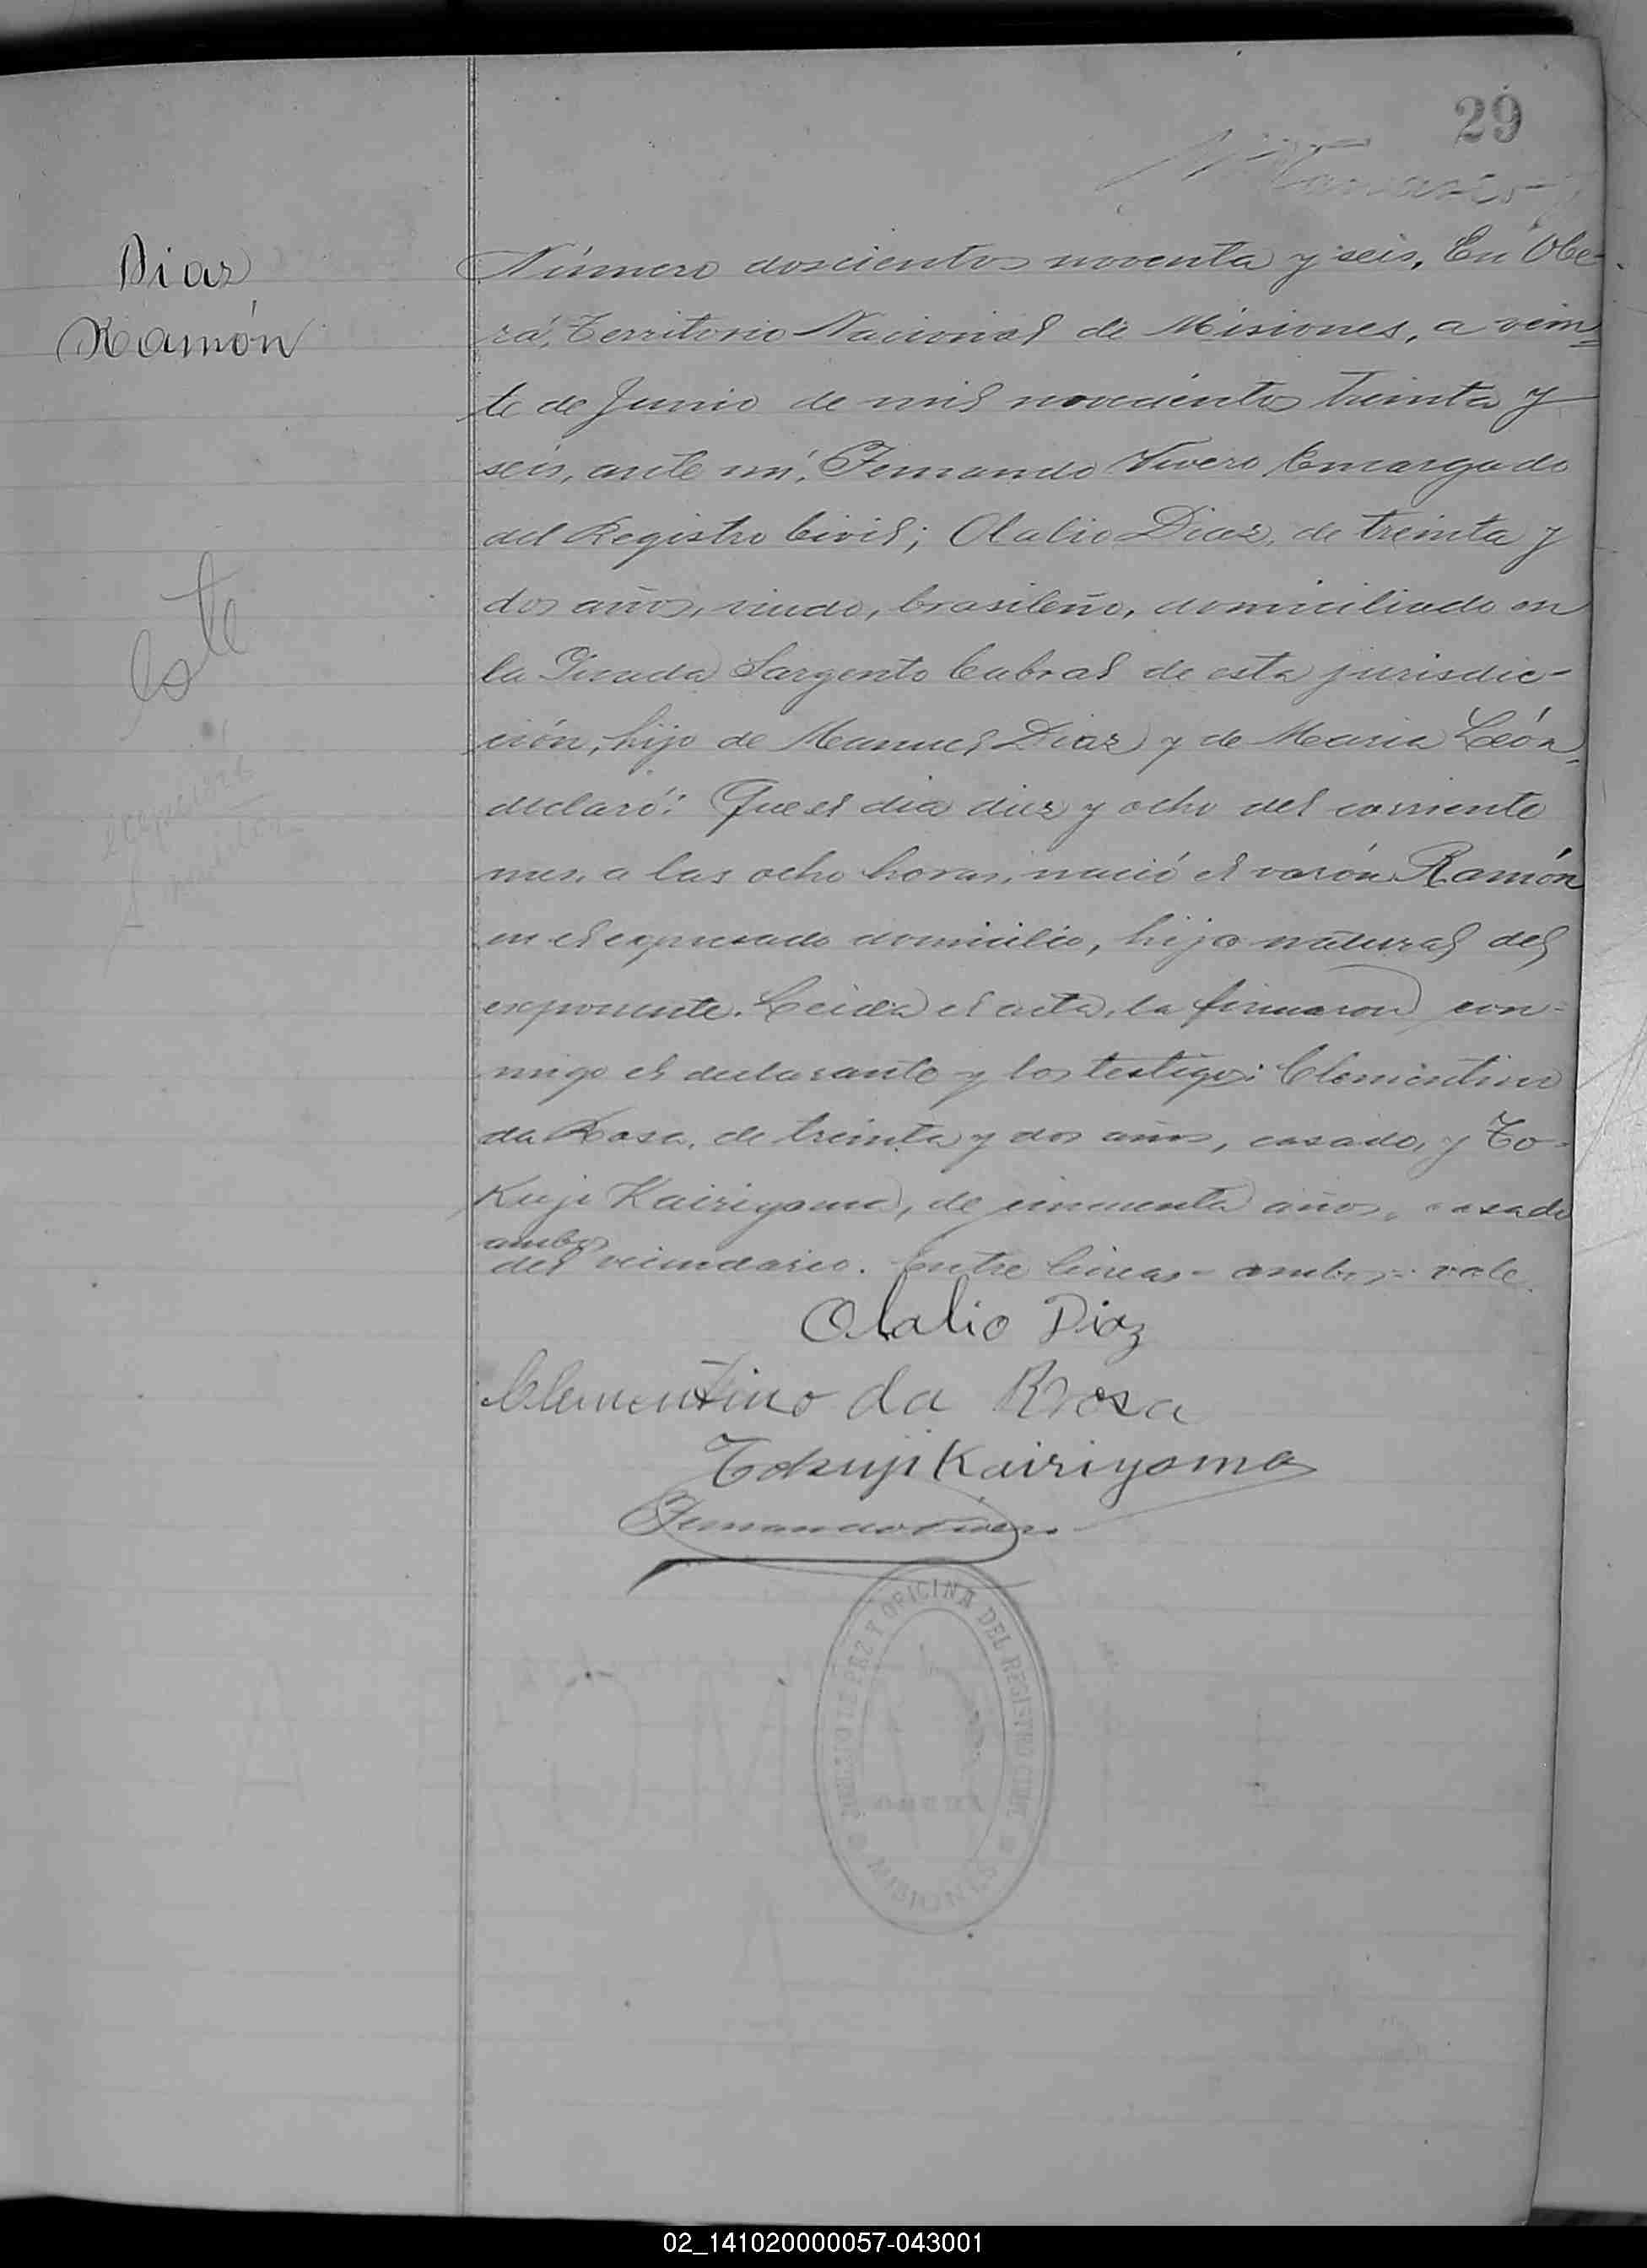 29
Diaz
Ramón
Número doscientos noventa y seis. En Obe-
rá, Territorio Nacional de Misiones, a vein=
te de Junio de mil novecientos treinta y
seis, ante mí, Fernando Vivero Encargado
del Registro Civil; Olalio Diaz, de treinta y
dos años, viudo, brasileño, domiciliado en
la Picada Sargento Cabral de esta jurisdic-
ción, hijo de Manuel Diaz y de Maria León,
declaró: Que el dia diez y ocho del corriente
mes, a las ocho horas, nació el varón Ramón
en el expresado domicilio, hijo natural del
exponente. Leida el acta, la firmaron con-
migo el declarante y los testigos: Clementino
da Rosa, de treinta y dos años, casado, y To-
Kuji Kairiyama, de cincuenta años, casado
ambos
del vecindario. Entre lineas - ambos = vale.
Olalio Diaz
Clementino da Rosa
Tokuji Kairiyama
Fernando Vivero
Este
JUZGADO DE PAZ Y OFICINA DEL REGISTRO CIVIL
OBERA
MISIONES
02_141020000057-043001